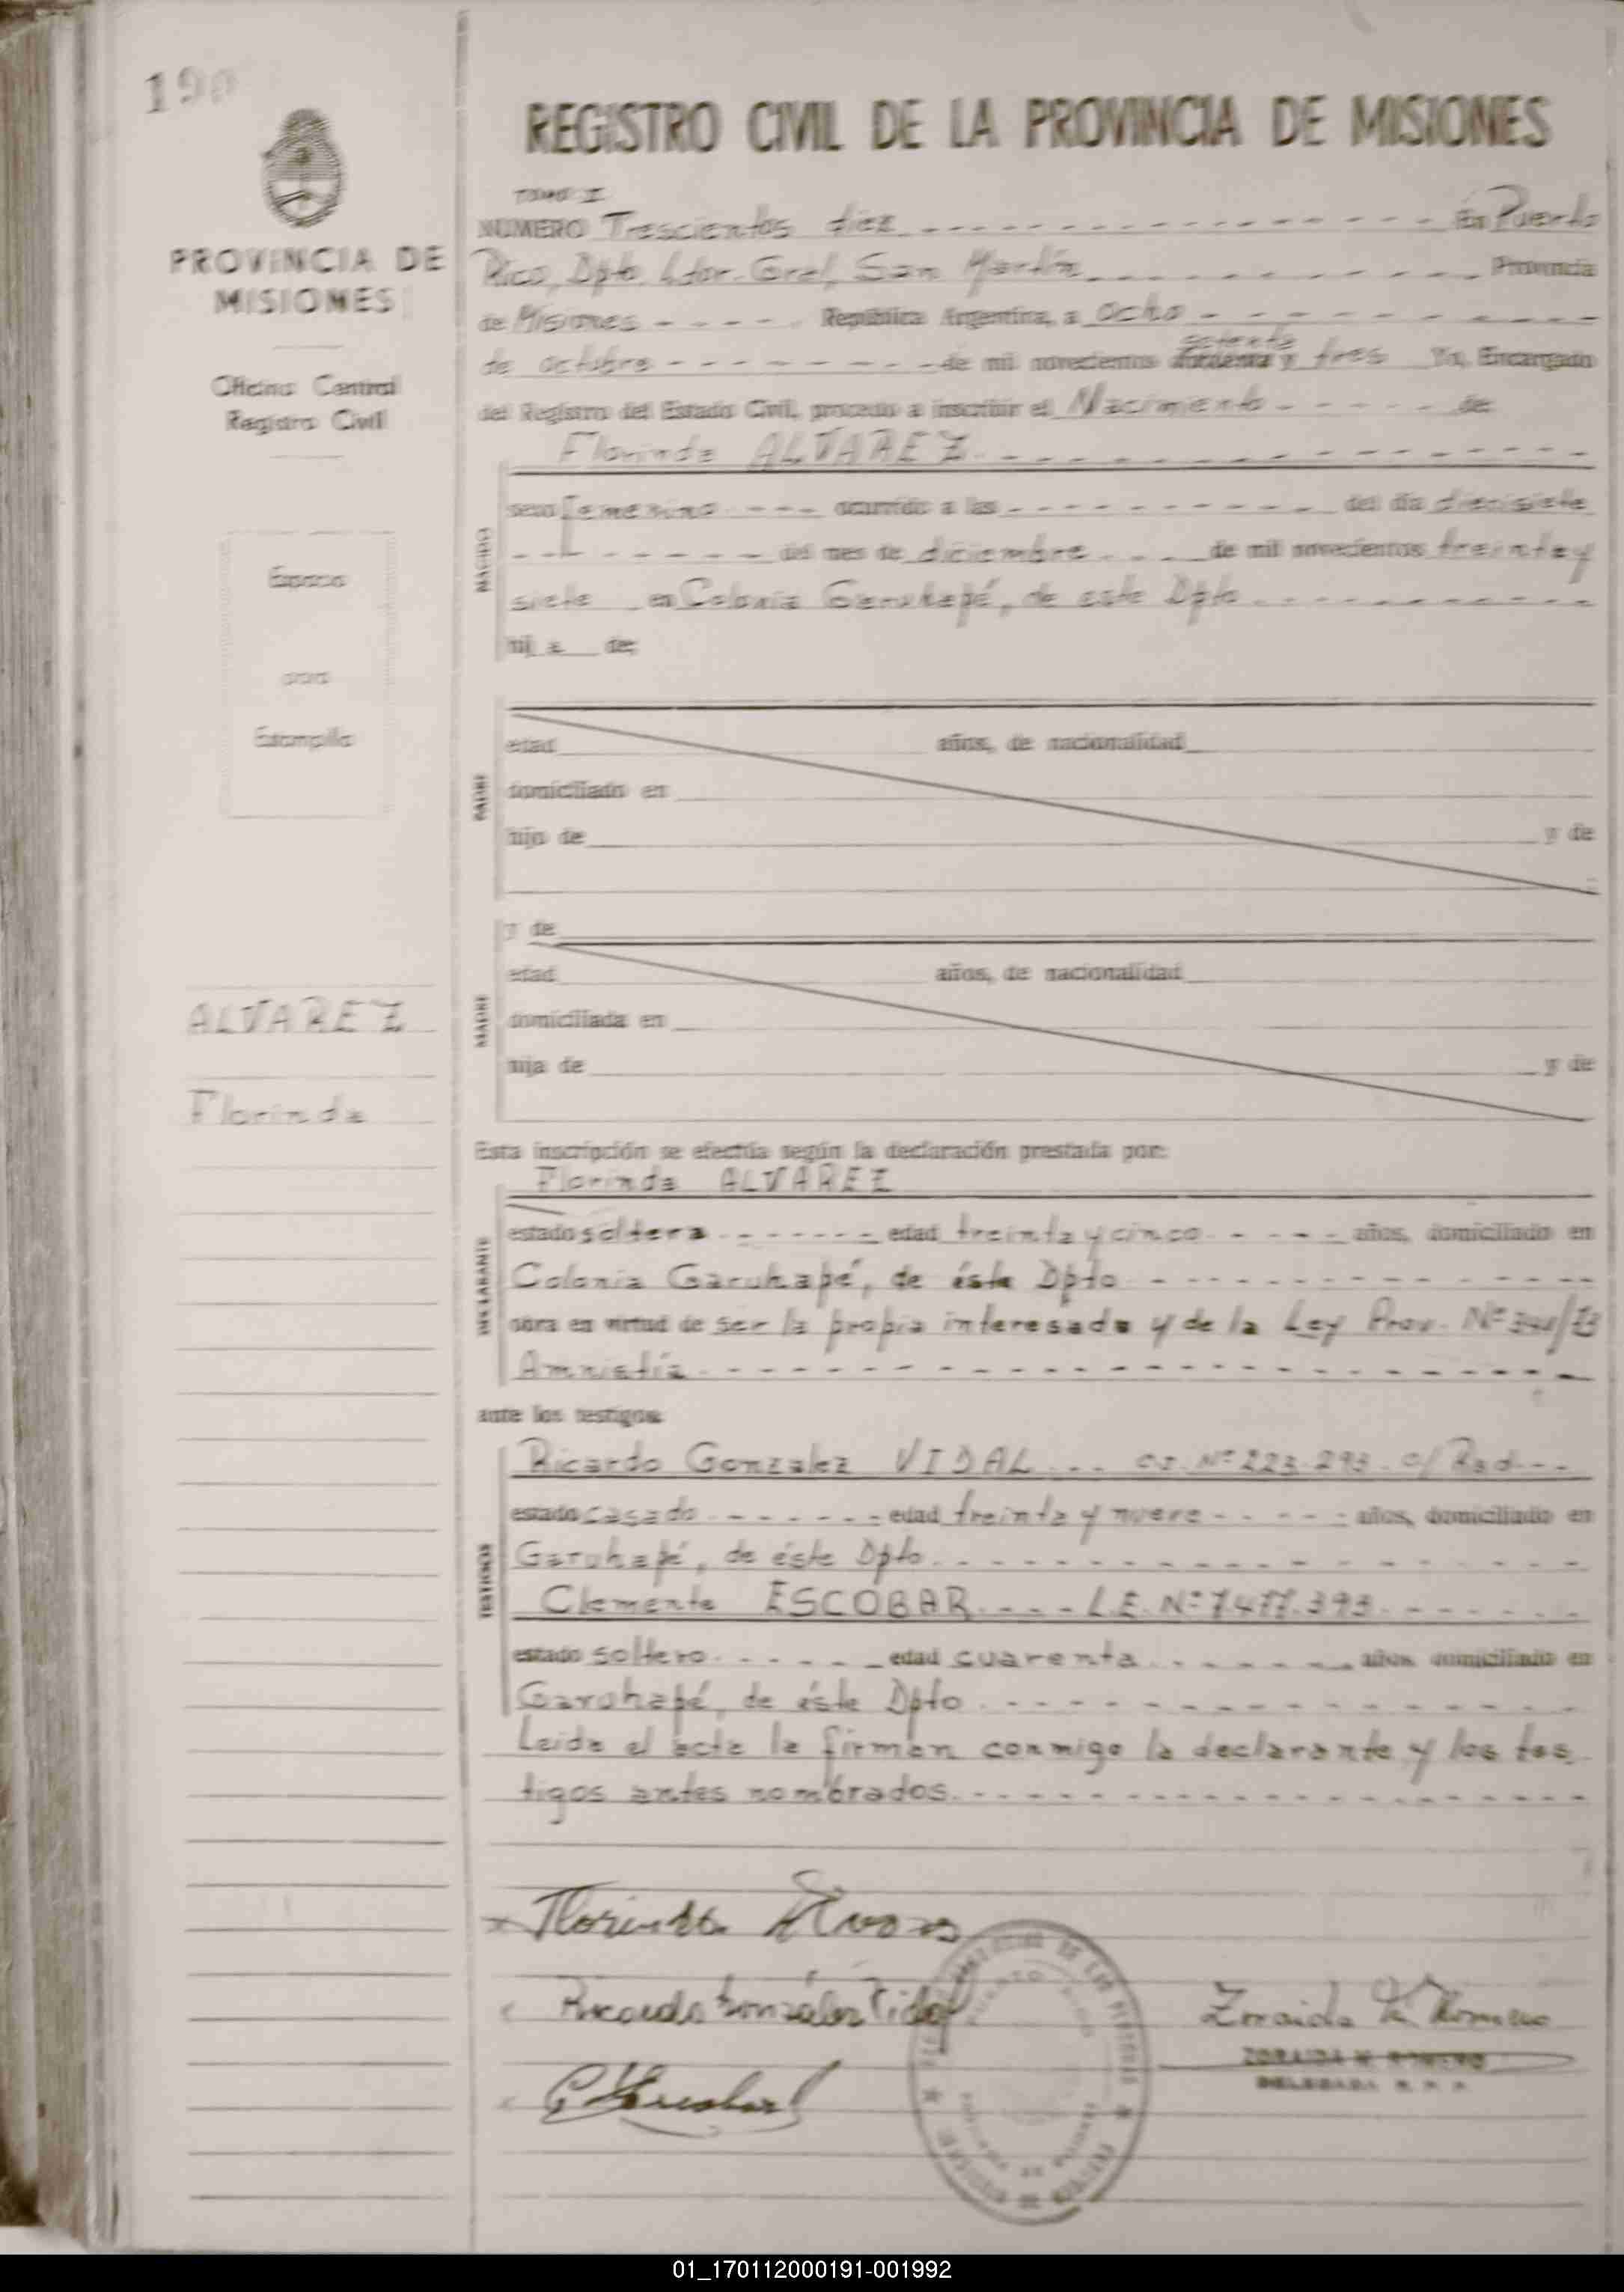 REGISTRO CIVIL DE LA PROVINCIA DE MISIONES
PROVINCIA DE
MISIONES
Oficina Central
Registro Civil
Espacio
para
Estampilla
ALVAREZ
Florinda
TOMO II
NUMERO Trescientos diez En Puerto
Rico, Dpto. Ldor. Gral. San Martín Provincia
de Misiones República Argentina, a ocho
setenta
de octubre de mil novecientos y tres Yo, Encargado
del Registro del Estado Civil, procedo a inscribir el Nacimiento de
Florinda ALVAREZ
NACIDO
sexo femenino ocurrido a las del día diecisiete
del mes de diciembre de mil novecientos treinta y
siete en Colonia Garuhapé, de este Dpto
hij a de:
PADRE
edad años, de nacionalidad
domiciliado en
hijo de y de
MADRE
y de
edad años, de nacionalidad
domiciliada en
hija de y de
Esta inscripción se efectúa según la declaración prestada por:
Florinda ALVAREZ
DECLARANTE
estado soltera edad treinta y cinco años, domiciliado en
Colonia Garuhapé, de éste Dpto
obra en virtud de ser la propia interesada y de la Ley Prov. Nº /73
Amnistía
ante los testigos:
TESTIGOS
Ricardo Gonzalez VIDAL Nº 223.293
estado casado edad treinta y nueve años, domiciliado en
Garuhapé, de éste Dpto
Clemente ESCOBAR L.E. Nº 7.477.393
estado soltero edad cuarenta años domiciliado en
Garuhapé, de éste Dpto
Leida el acta la firman conmigo la declarante y los tes
tigos antes nombrados.
Florinda Alvarez
Ricardo González Vidal
C Escobar
Zoraida Romero
ZORAIDA M. ROMERO
DELEGADA
01_170112000191-001992